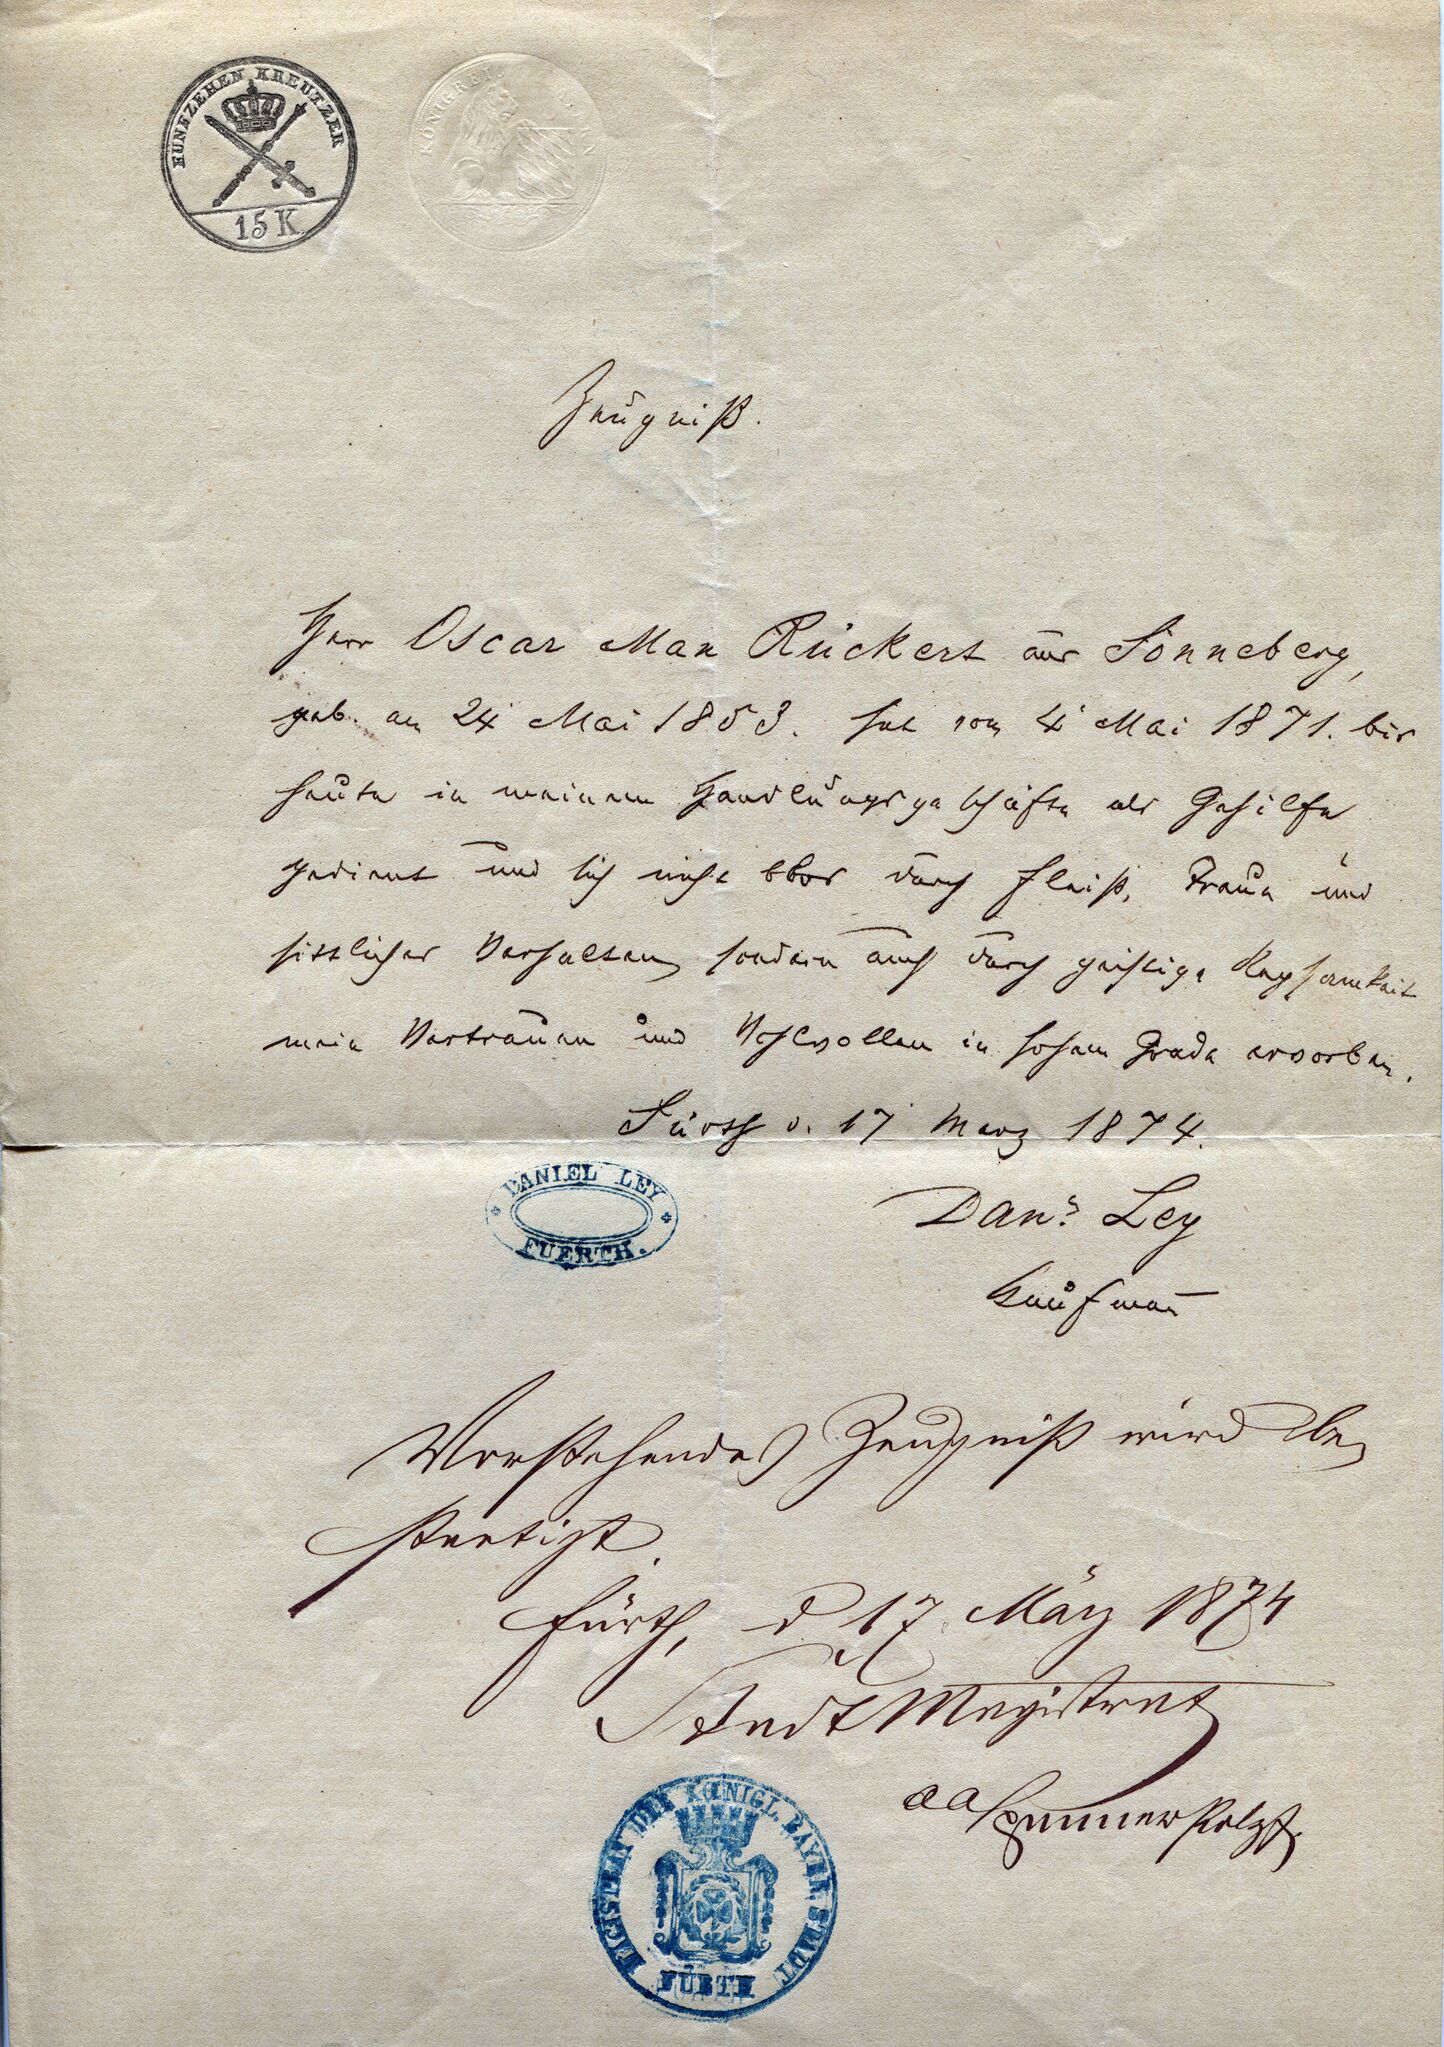 FÜNFZEHEN KREUTZER
15 K
KÖNIGREICH BAYERN
Zeugniß.
Herr Oscar Max Rückert aus Sonneberg,
geb. am 24 Mai 1853. hat vom 4 Mai 1871. bis
heute in meinem Handlungsgeschäfte als Gehilfe
gedient und sich nicht blos durch Fleiß, Treue und
sittliches Verhalten, sondern auch durch geistige Regsamkeit
mein Vertrauen und Wohlwollen in hohem Grade erworben.
Fürth d. 17 März 1874.
DANIEL LEY
FUERTH.
Danl. Ley
Kaufmann
Vorstehendes Zeugniß wird be
staetigt.
Fürth, d 17. März 1874
Stadt Magistrat
MAGISTRAT DER KÖNIGL. BAYER. STADT
FÜRTH